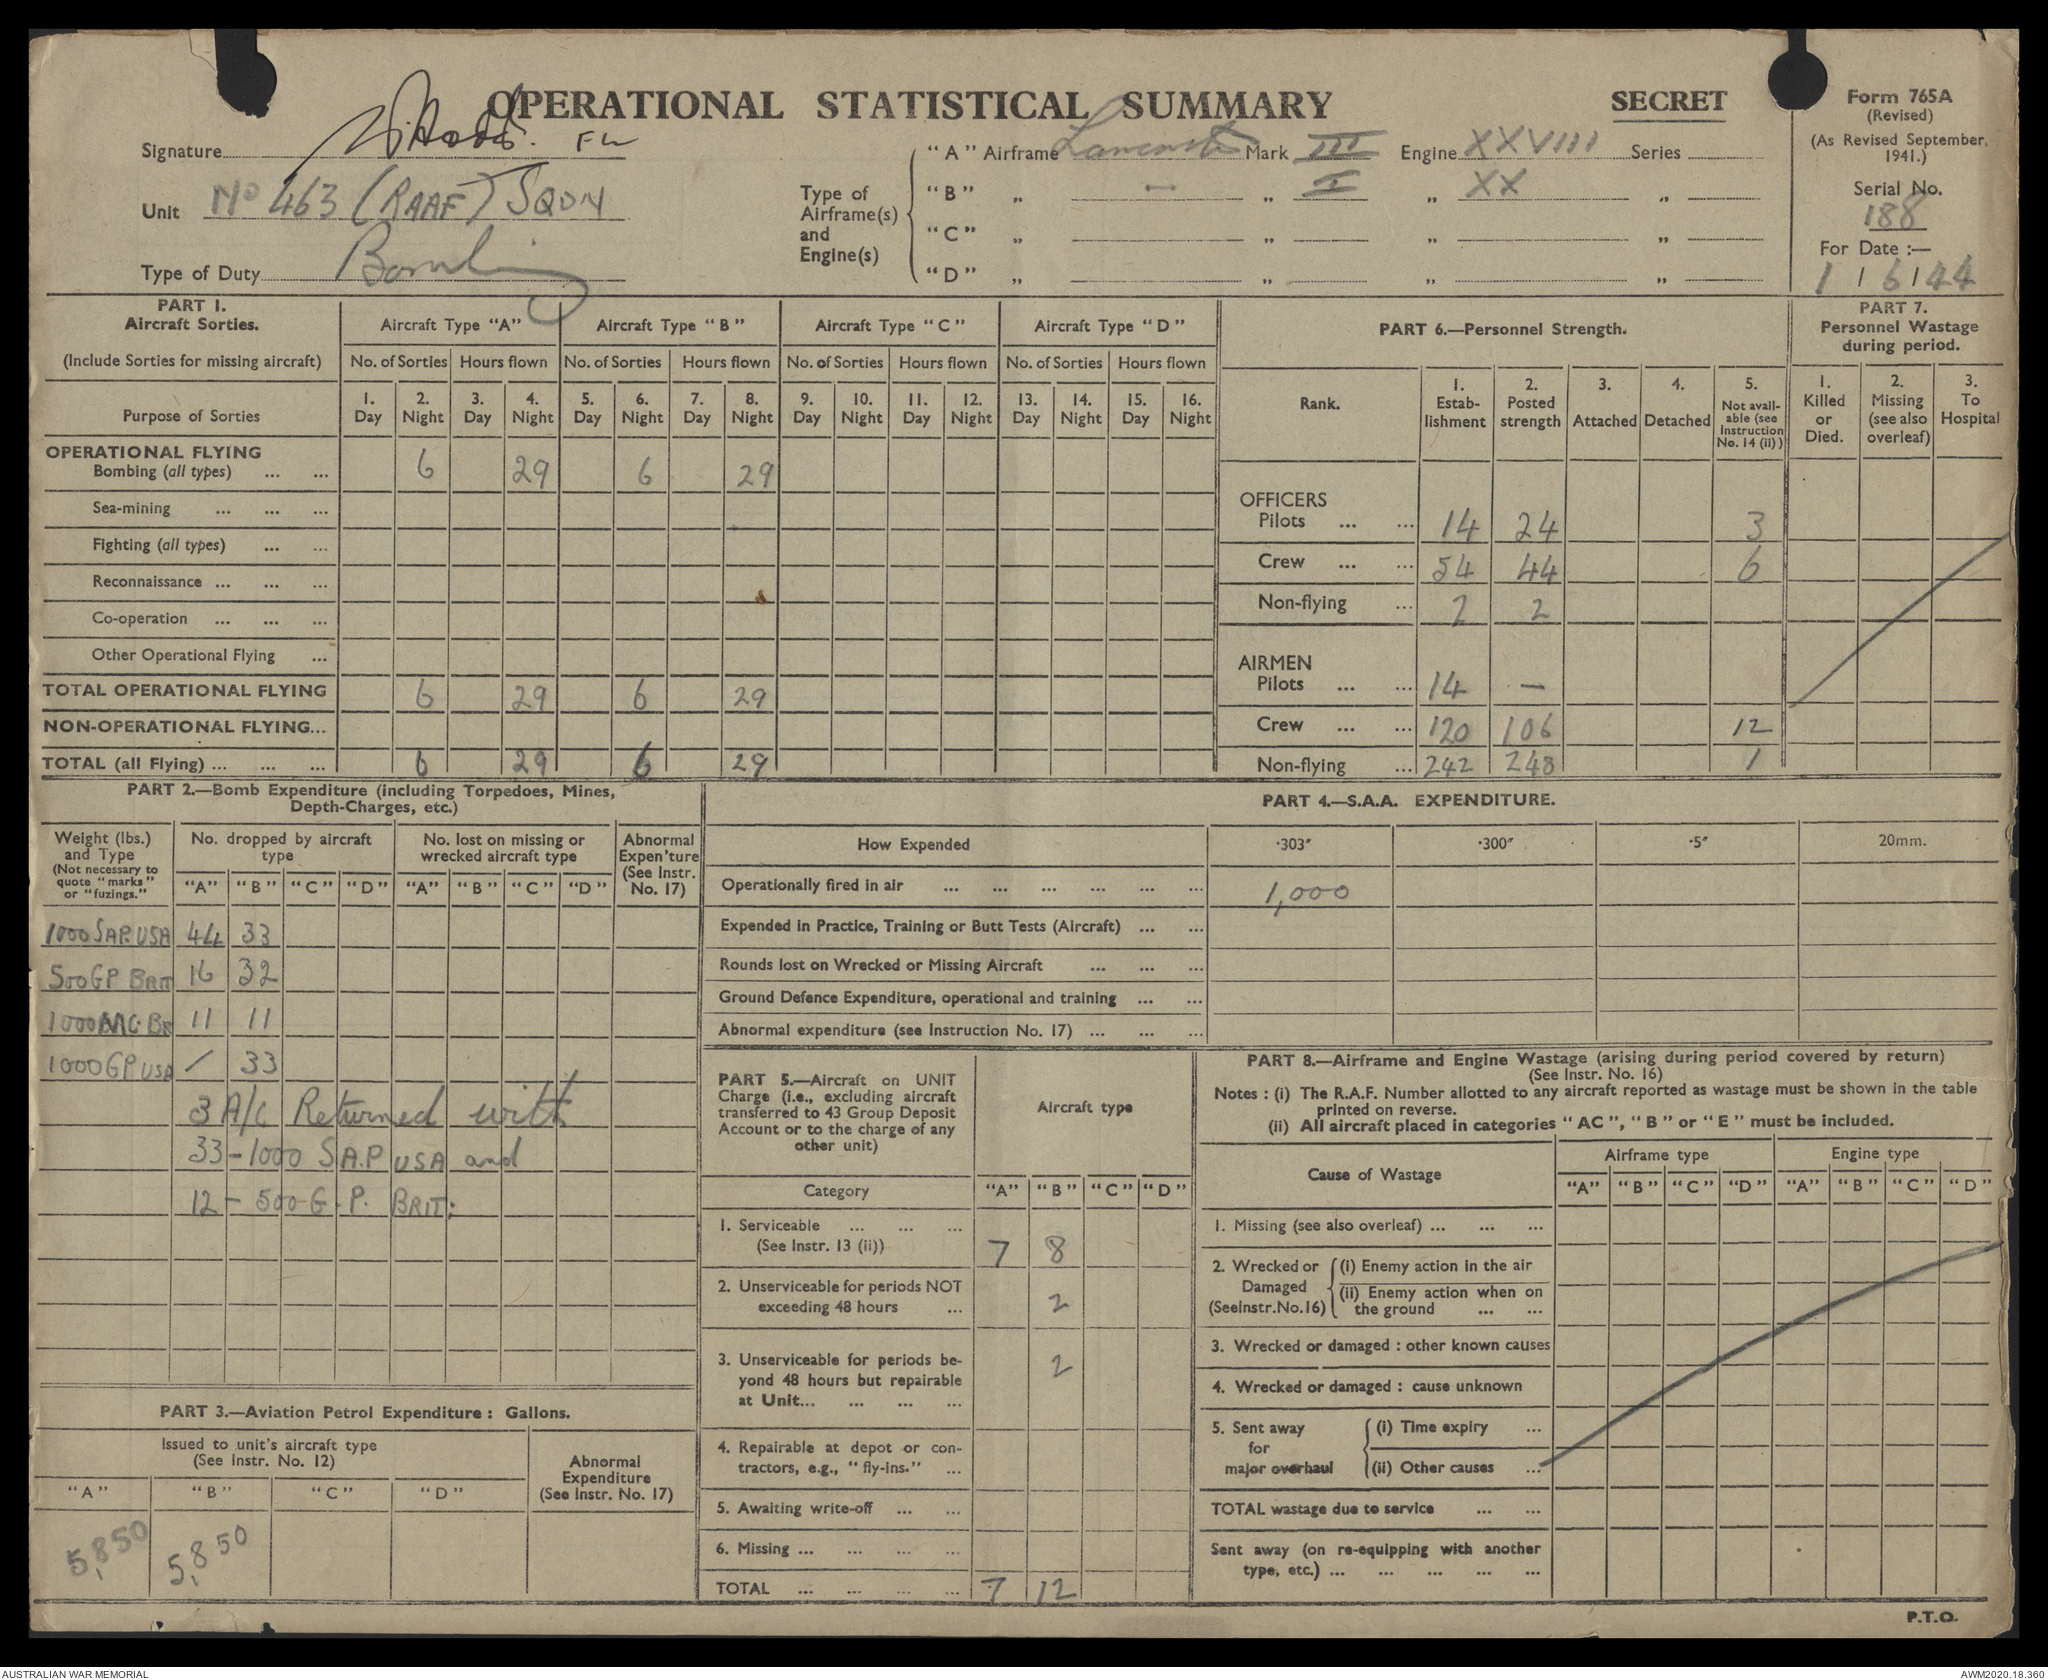 OPERATIONAL STATISTICAL SUMMARY
SECRET
Form 765A
(Revised)
(As Revised September, 1941.)
Serial No.
188
For Date :—
1 / 6 / 44
Signature
Unit No 463 (RAAF) SQDN
Type of Duty Bombing
Type of Airframe(s) and Engine(s)
"A" Airframe Lancaster Mark III Engine XXVIII Series
"B" „ — „ I „ XX „
"C" „ „ „ „
"D" „ „ „ „
PART 1.
Aircraft Sorties.
(Include Sorties for missing aircraft)
Aircraft Type "A" Aircraft Type "B" Aircraft Type "C" Aircraft Type "D"
No. of Sorties Hours flown No. of Sorties Hours flown No. of Sorties Hours flown No. of Sorties Hours flown
Purpose of Sorties
1. Day 2. Night 3. Day 4. Night 5. Day 6. Night 7. Day 8. Night 9. Day 10. Night 11. Day 12. Night 13. Day 14. Night 15. Day 16. Night
OPERATIONAL FLYING
Bombing (all types) ... ... 6 29 6 29
Sea-mining ... ... ...
Fighting (all types) ... ...
Reconnaissance ... ... ...
Co-operation ... ... ...
Other Operational Flying ...
TOTAL OPERATIONAL FLYING 6 29 6 29
NON-OPERATIONAL FLYING...
TOTAL (all Flying) ... ... ... 6 29 6 29
PART 6.—Personnel Strength.
Rank.
1. Estab-lishment
2. Posted strength
3. Attached
4. Detached
5. Not avail-able (see Instruction No. 14 (ii))
OFFICERS
Pilots ... ... 14 24 3
Crew ... ... 54 44 6
Non-flying ... 2 2
AIRMEN
Pilots ... ... 14 —
Crew ... ... 120 106 12
Non-flying ... 242 248 1
PART 7.
Personnel Wastage
during period.
1. Killed or Died.
2. Missing (see also overleaf)
3. To Hospital
PART 2.—Bomb Expenditure (including Torpedoes, Mines,
Depth-Charges, etc.)
Weight (lbs.) and Type
(Not necessary to quote "marks" or "fuzings."
No. dropped by aircraft type
No. lost on missing or wrecked aircraft type
Abnormal Expen'ture (See Instr. No. 17)
"A" "B" "C" "D" "A" "B" "C" "D"
1000 SAP. USA 44 33
500 GP BRIT 16 32
1000 MC BR 11 11
1000 GP USA / 33
3 A/C Returned with
33 - 1000 S.A.P USA and
12 - 500 G.P. BRIT:
PART 3.—Aviation Petrol Expenditure : Gallons.
Issued to unit's aircraft type
(See Instr. No. 12)
Abnormal Expenditure
(See Instr. No. 17)
"A" "B" "C" "D"
5,850 5,850
PART 4.—S.A.A. EXPENDITURE.
How Expended ·303" ·300" ·5" 20mm.
Operationally fired in air ... ... ... ... ... ... 1,000
Expended in Practice, Training or Butt Tests (Aircraft) ... ...
Rounds lost on Wrecked or Missing Aircraft ... ... ...
Ground Defence Expenditure, operational and training ... ...
Abnormal expenditure (see Instruction No. 17) ... ... ...
PART 5.—Aircraft on UNIT
Charge (i.e., excluding aircraft
transferred to 43 Group Deposit
Account or to the charge of any
other unit)
Aircraft type
Category "A" "B" "C" "D"
1. Serviceable ... ... ...
(See Instr. 13 (ii)) 7 8
2. Unserviceable for periods NOT
exceeding 48 hours ... 2
3. Unserviceable for periods be-
yond 48 hours but repairable 2
at Unit... ... ... ...
4. Repairable at depot or con-
tractors, e.g., "fly-ins." ...
5. Awaiting write-off ... ...
6. Missing ... ... ... ...
TOTAL ... ... ... ... 7 12
PART 8.—Airframe and Engine Wastage (arising during period covered by return)
(See Instr. No. 16)
Notes : (i) The R.A.F. Number allotted to any aircraft reported as wastage must be shown in the table
printed on reverse.
(ii) All aircraft placed in categories "AC", "B" or "E" must be included.
Cause of Wastage
Airframe type Engine type
"A" "B" "C" "D" "A" "B" "C" "D"
1. Missing (see also overleaf) ... ... ...
2. Wrecked or Damaged (SeeInstr.No.16)
(i) Enemy action in the air
(ii) Enemy action when on
the ground ... ...
3. Wrecked or damaged : other known causes
4. Wrecked or damaged : cause unknown
5. Sent away for major overhaul
(i) Time expiry ...
(ii) Other causes ...
TOTAL wastage due to service ... ...
Sent away (on re-equipping with another
type, etc.) ... ... ... ... ...
P.T.O.
AUSTRALIAN WAR MEMORIAL
AWM2020.18.360